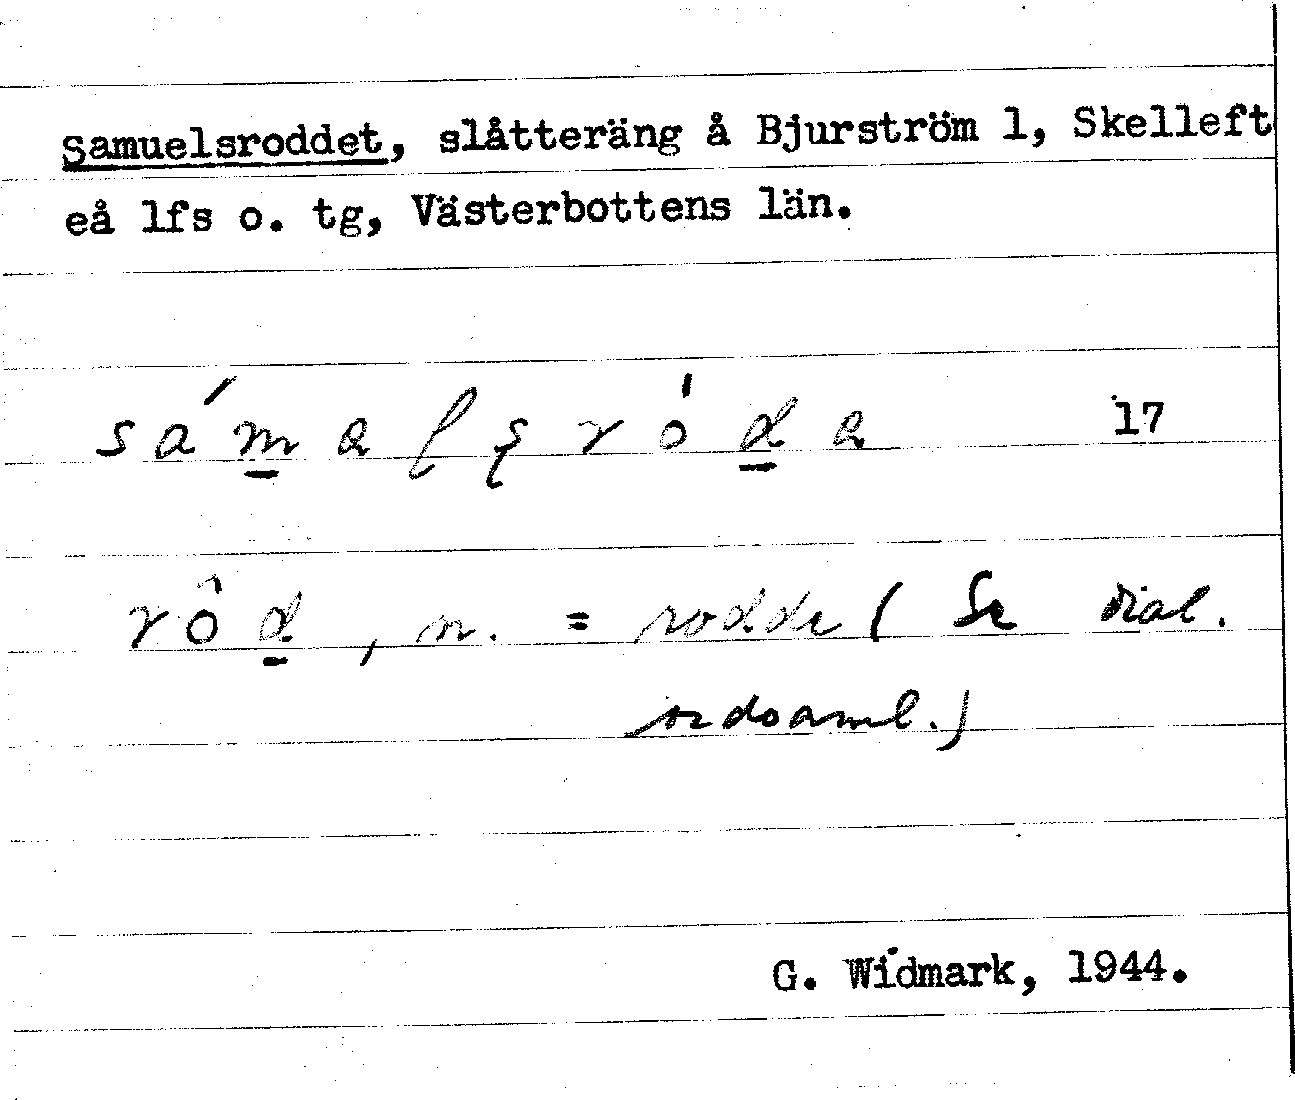 Samuelsroddet, slåtteräng å Bjurström 1, Skelleft
eå lfs o. tg, Västerbottens län.
17
rôd, n. = rodde (Se dial.
ordsaml.)
G. Widmark, 1944.